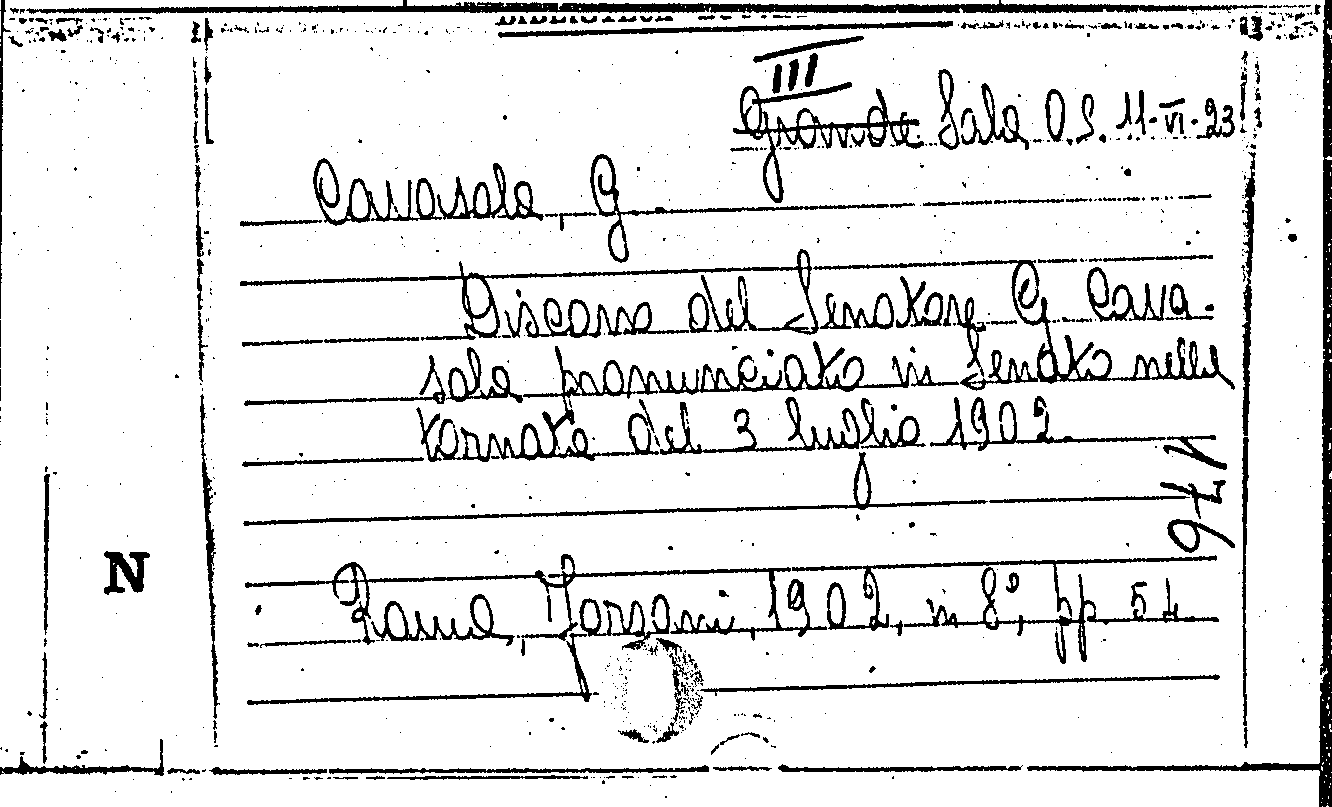 BIBLIOTECA
III
Grande Sala O.S. 11-VI-23
Cavasola, G.
Discorso del Senatore G. Cava-
sola pronunciato in Senato nella
tornata del 3 luglio 1902.
476
N
Roma, Forzani, 1902, in 8°, pp. 54.